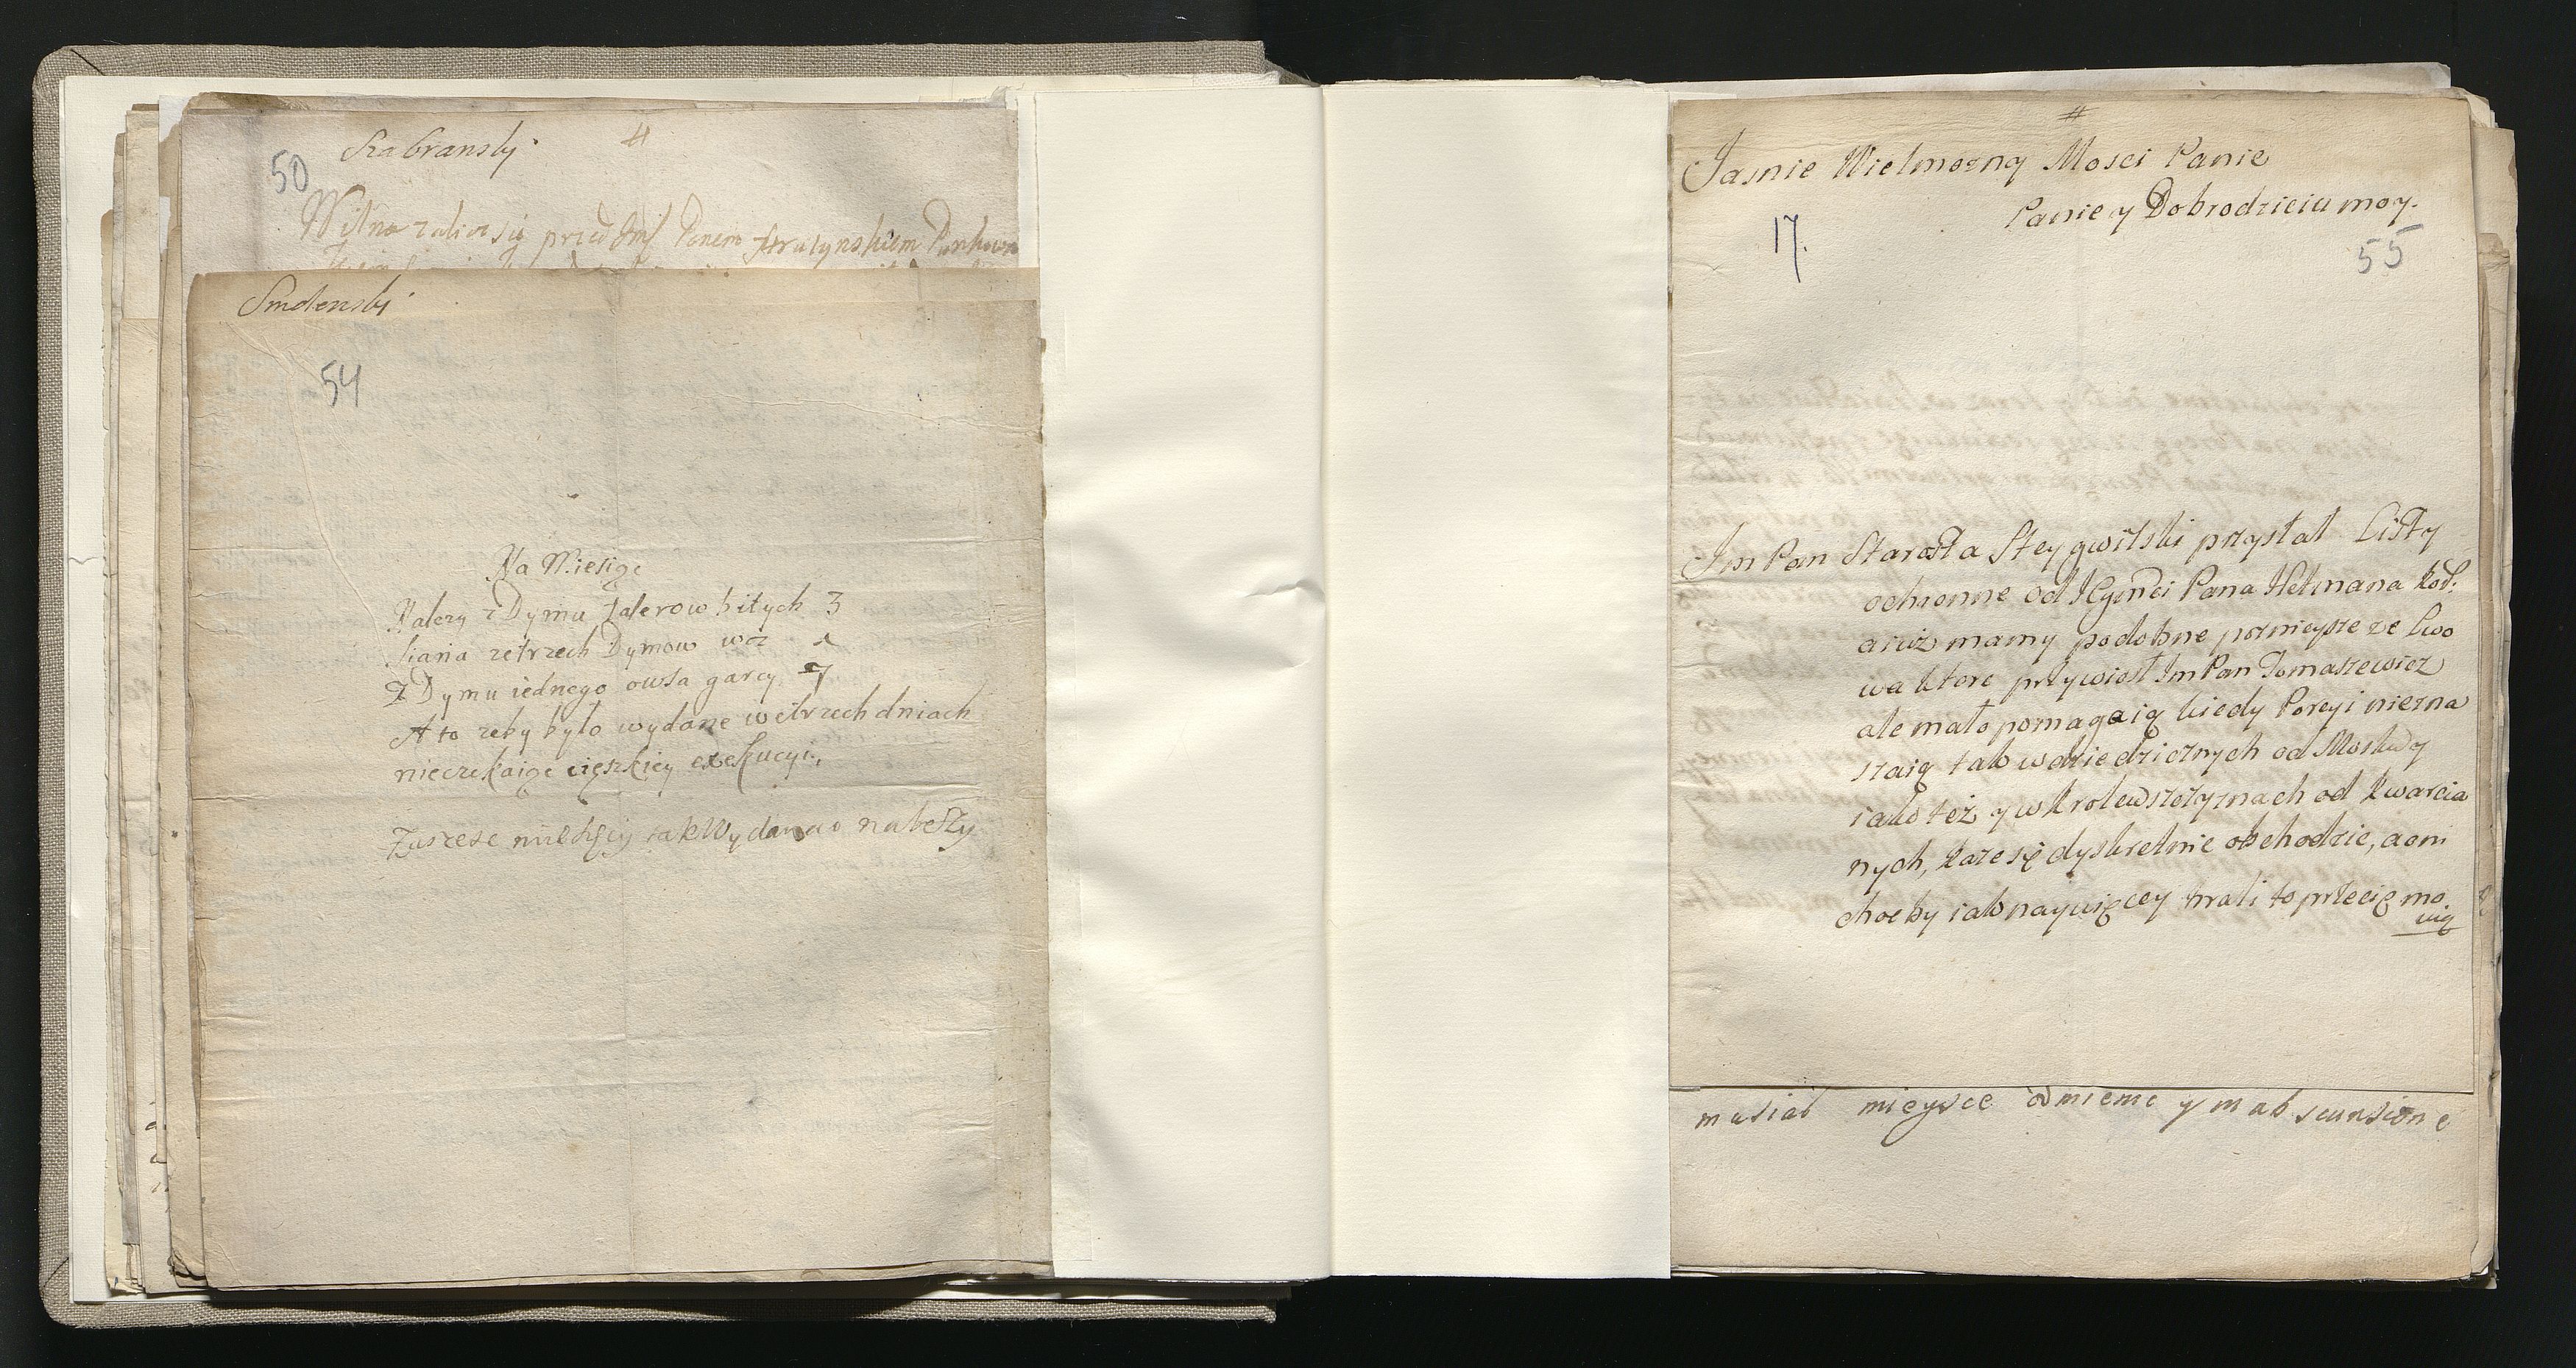 Szabransky
#
50
Wilno zalił się przed Jmć Panem
Smolensky
54
Na Miesiąc
Nalezy z Dymu Talerow bitych 3
Siana zetrzech Dymow woz 1
Z Dymu iednego owsa garcy 7
A to zeby było wydane wetrzech dniach
nieczekaiąc cięszkiey exekucyi,
tak Wydawac nalezy
#
Jasnie Wielmozny Mosci Panie
Panie y Dobrodzieiu moy.
17.
55
Jm Pan Starosta Steygwilski przysłał Listy
ochronne od JGymci Pana Hetmana Kor.
a iuz mamy podobne poznieysze ze Lwo
wa ktore przywiosł Jm Pan Tomaszewicz
ale mało pomagaią kiedy Porcyi niezna
szaią tak wdziedzicznych od Moskwy
iako też y w Krolewszczyznach od Kwarcia
nych, kaze się dyskretnie obchodzic, a oni
choc by iak naywięcey brali to przecię mo
wią
musiał mieysce odmienic y m ab